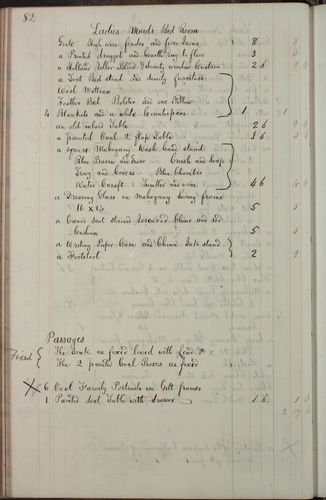 82
Ladies Maids Bed Room
Grate Steel wire fender and fire Irons 8 8
a Painted drugget and hearth rug to floor 3 3
a Holland Roller Blind & dimity window Curtain 2 6 2 6
a Tent Bed stead and dimity furniture
Wool Mattrass
Feather Bed Bolster and one Pillow
4 Blankets and a white Counterpane 1 1
an old inlaid Table 2 6 2 6
a painted Oval 2 flap Table 3 6 3 6
a square Mahogany Wash hand stand
Blue Bason and Ewer Brush and Soap
Tray and Covers Blue Chamber
Water Caraft 1 Tumbler and wine 4 6 4 6
a Dressing Glass in Mahogany swing frame
16 x 13 5 5
a Caned seat stained Rosewood Chair and red
Cushion 5 5
a Writing Paper Case and China Ink stand
a Footstool 2 2
Passages
Fixed The Sink as fixed lined with Lead &c
The 2 painted Coal Boxes as fixed
6 Oval Family Portraits in Gilt frames
1 Painted deal Table with Drawer 1 6